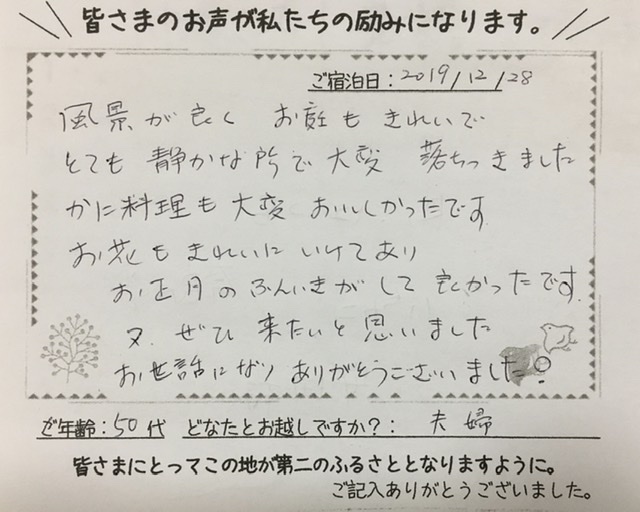 皆さまのお声が私たちの励みになります。
ご宿泊日：2019/12/28
風景が良く お庭も きれいで
とても 静かな所で 大変 落ちつきました
かに料理も 大変 おいしかったです
お花も きれいに いけてあり
お正月の ふんいきが して 良かったです.
又. ぜひ 来たいと 思いました
お世話になり ありがとうございました。
ご年齢：50代 どなたとお越しですか？： 夫婦
皆さまにとってこの地が第二のふるさととなりますように。
ご記入ありがとうございました。